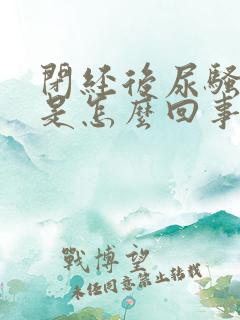 閉經後尿騷
是怎麼回事
戰博望
未任同意禁止转载